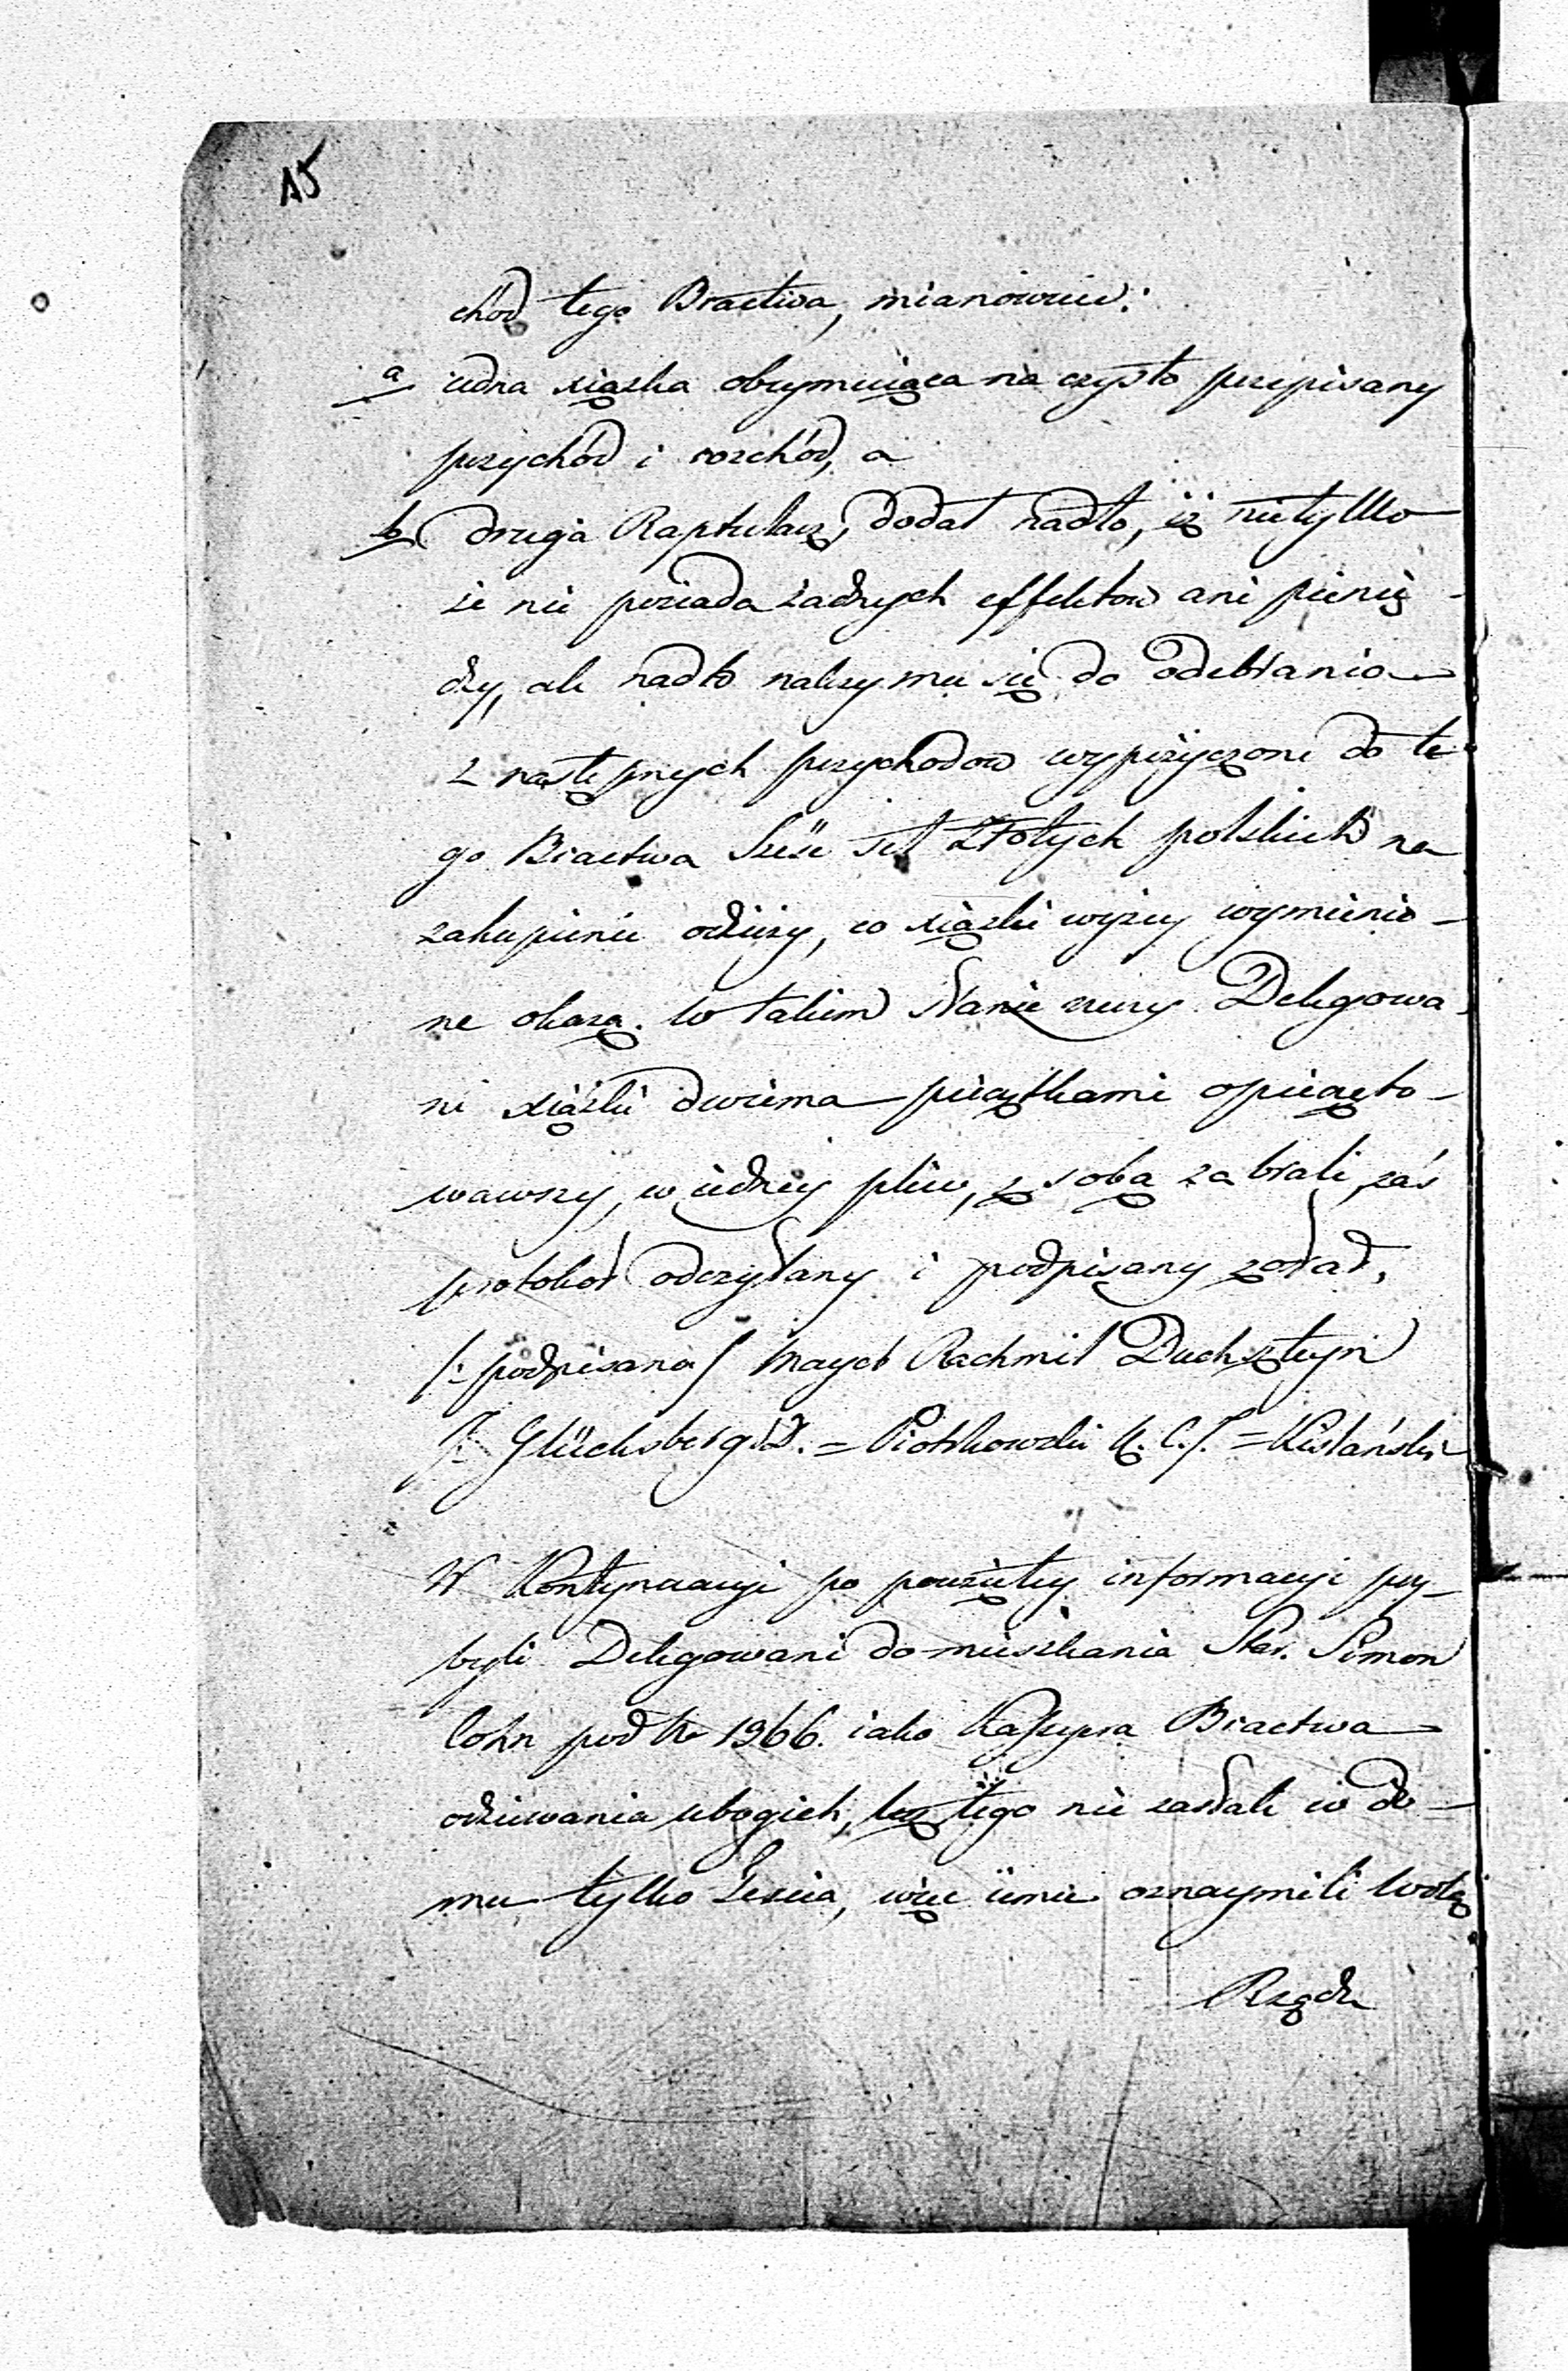 15
chod tego Bractwa, mianowicie:
a iedna xiązka obeymuiąca na czysto przepisany
przychód i rozchód, a
b druga Raptularz, dodał nadto, iż nietylko
że nie posiada żadnych effektow ani pienię-
dzy, ale nadto należy mu się do odebrania
z następnych przychodow wypożyczone do te-
go Bractwa Sześć set Złotych polskich na
zakupienie odzieży, co xiązki wyżey wymienio-
ne okażą. w takim stanie rzeczy Delegowa-
ni xiążki dwiema pieczątkami opieczęto-
wawszy, w iedney plice, z sobą zabrali, zaś
protokół odczytany i podpisany został.
/: podpisano / Mayer Rachmil Duchsztejn
J. Glücksberg D. = Piotrkowski K. C. J. = Kislański
W Kontynuacyi po powziętey informacyi przy-
byli Delegowani do mieszkania Star. Simon
Cohn pod No 1966. iako Kassyera Bractwa
odziewania ubogich, lecz tego nie zastali w do-
mu tylko Zięcia, więc iemu oznaymili Wolą
Rządu